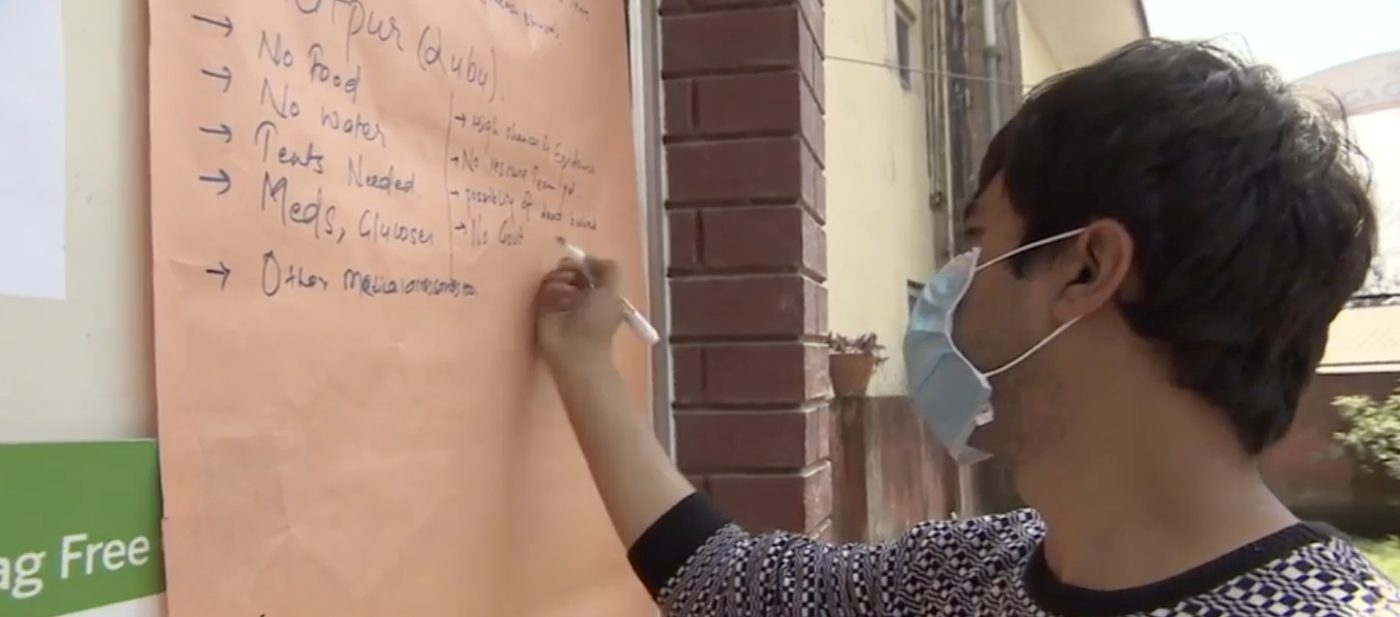 tpur (Lubu).
→ No Food
→ No water
→ Tents Needed
→ Meds, Glucose
→ Other
→ High chances of Epidemic
→ No rescue Team yet
→ possibility of dead buried
→ No Govt
ag Free